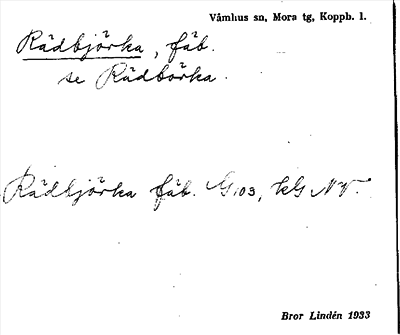 Våmhus sn, Mora tg, Koppb. l.
Rädbjörka, fäb.
se Rädbörka.
Rädbjörka fäb. G103, kG NV.
Bror Lindén 1933